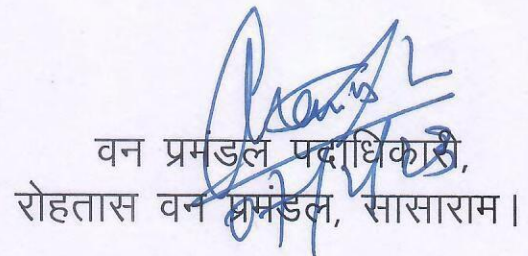 वन प्रमंडल पदाधिकारी,
रोहतास वन प्रमंडल, सासाराम।